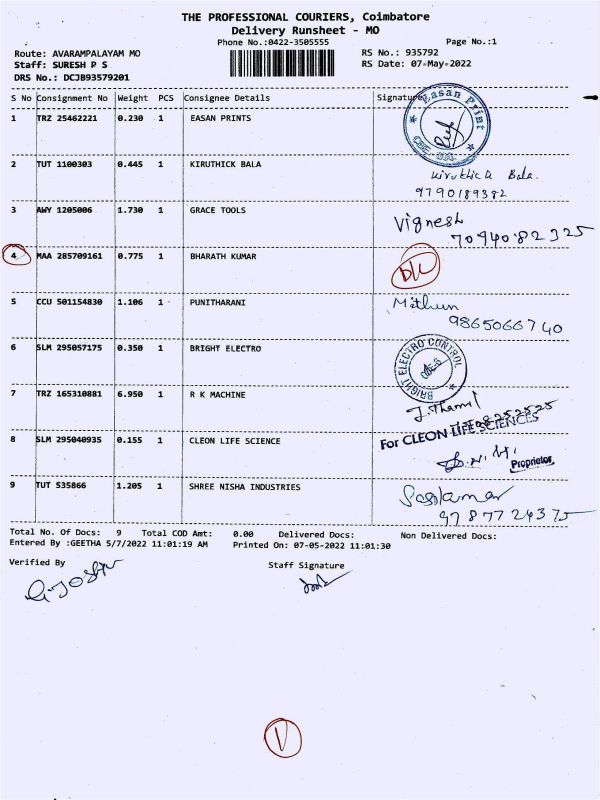 THE PROFESSIONAL COURIERS, Coimbatore
Delivery Runsheet - MO
Phone No.:0422-3505555 Page No.:1
Route: AVARAMPALAYAM MO RS No.: 935792
Staff: SURESH P S RS Date: 07-May-2022
DRS No.: DCJB93579201
S No Consignment No Weight PCS Consignee Details Signature
1 TRZ 25462221 0.230 1 EASAN PRINTS Easan Print
2 TUT 1100303 0.445 1 KIRUTHICK BALA Kiruthick Bala.
9790189382
3 AWY 1205006 1.730 1 GRACE TOOLS Vignesh
7094082325
4 MAA 285709161 0.775 1 BHARATH KUMAR
5 CCU 501154830 1.106 1 PUNITHARANI Mithun
9865066740
6 SLM 295057175 0.350 1 BRIGHT ELECTRO BRIGHT ELECTRO CONTROL
7 TRZ 165310881 6.950 1 R K MACHINE J. Thamil
8 SLM 295040935 0.155 1 CLEON LIFE SCIENCE For CLEON LIFE SCIENCES
Proprietor
9 TUT 535866 1.205 1 SHREE NISHA INDUSTRIES
9787724375
Total No. Of Docs: 9 Total COD Amt: 0.00 Delivered Docs: Non Delivered Docs:
Entered By :GEETHA 5/7/2022 11:01:19 AM Printed On: 07-05-2022 11:01:30
Verified By Staff Signature